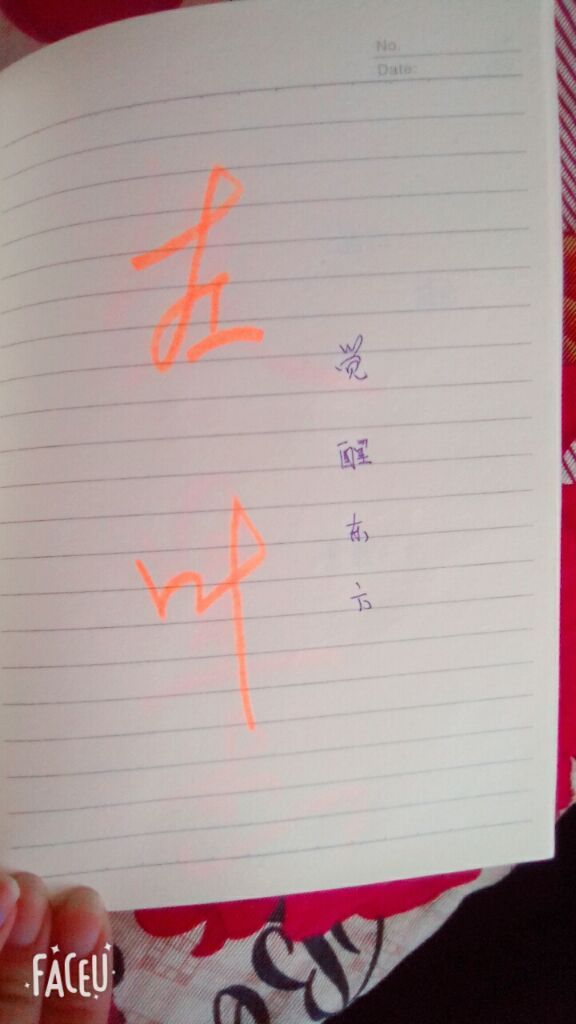 No.
Date:
左
叶
觉醒东方
FACEU